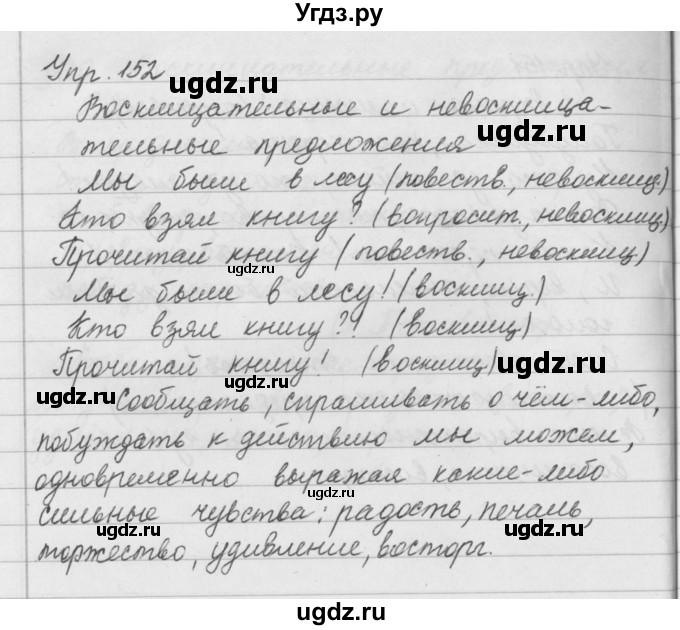 Угдз.ру
Упр. 152
ugdz.ru
Восклицательные и невосклица-
ugdz.ru
тельные предложения
Мы были в лесу (повеств., невосклиц.)
Кто взял книгу? (вопросит., невосклиц)
Прочитай книгу (повеств., невосклиц)
ugdz.ru
Мы были в лесу! (восклиц.)
Кто взял книгу?! (восклиц)
Прочитай книгу! (восклиц)
ugdz.ru
ugdz.ru
ugdz.ru
Сообщать, спрашивать о чём-либо,
побуждать к действию мы можем,
одновременно выражая какие-либо
ugdz.ru
сильные чувства: радость, печаль,
ugdz.ru
торжество, удивление, восторг.
ugdz.ru